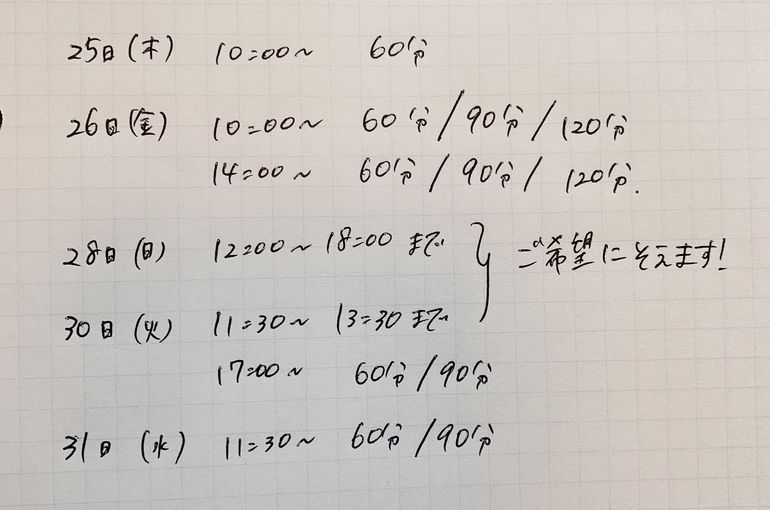 25日(木) 10:00~ 60分
26日(金) 10:00~ 60分/90分/120分
14:00~ 60分/90分/120分.
28日(日) 12:00~18:00 まで
ご希望にそえます!
30日(火) 11:30~ 13:30 まで
17:00~ 60分/90分
31日(水) 11:30~ 60分/90分